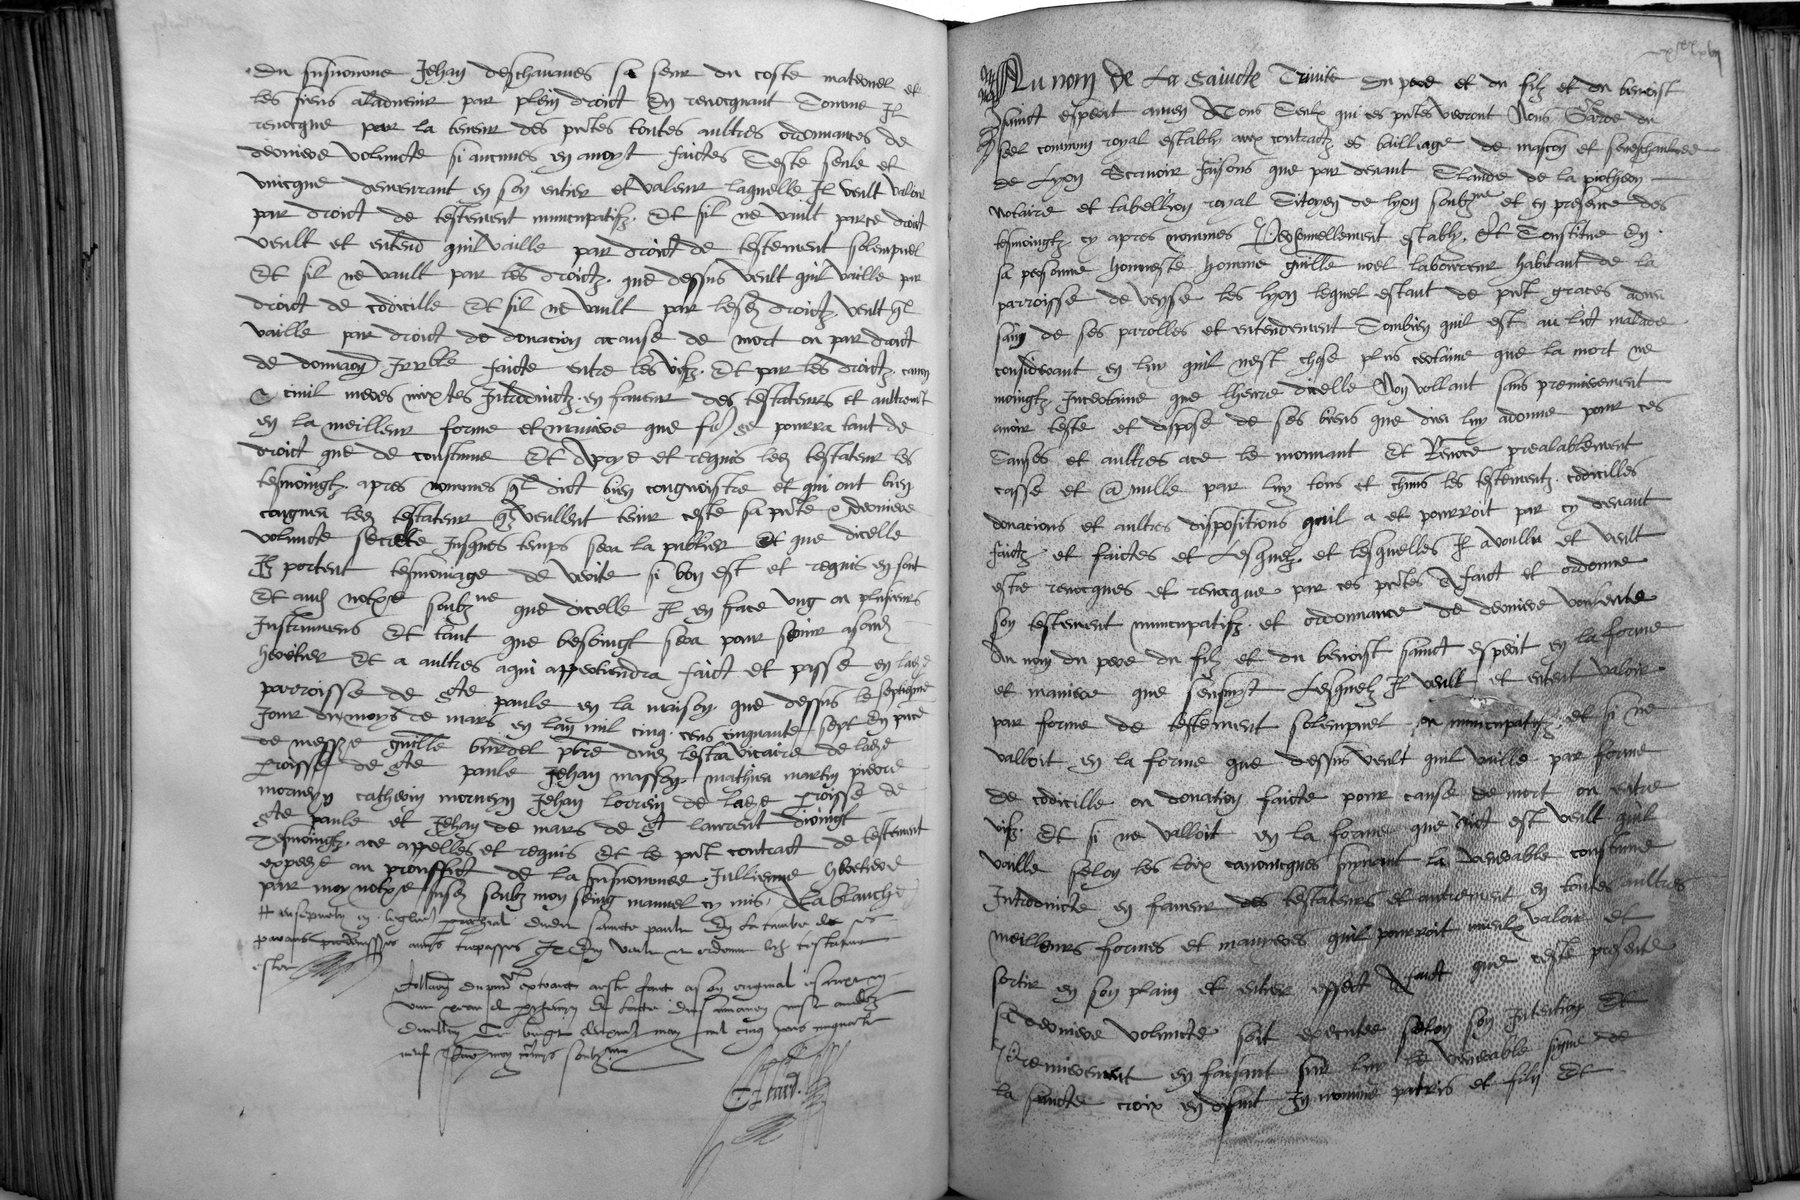 Du susnomme Jehan deschavanes sa seur du coste maternel et
les siens aladvenir par plein droict En revocquant Comme Il
revocque par la teneur des pntes toutes aultres ordonnances de
derniere volunte si aucunes en avoyt faictes Ceste seule et
unicque demeurant en son entier et valeur laquelle Il veult valoir
par droict de testement nuncupatifz. Et sil ne vault par ce droict
veult et entend quil vaille par droict de testement solempnel
Et sil ne vault par les droictz que dessus veult quil vaille par
droict de codicille Et sil ne vault par lesd droictz veult ql
vaille par droict de donacion a cause de mort ou par droict
de donnaon Irrble faicte entre les vifz. Et par les droictz canon
& civil introduictz en faveur des testateurs et aultremt
en la meilleur forme et maniere que fe se pourra tant de
droict que de coustume Et A prye et requis led testateur les
tesmoingtz apres nommes ql dict bien congnoistre et qui ont bien
congneu led testateur qlz veullent tenir ceste sa pnte & derniere
volunte secrette Jusques temps sera la publier Et que dicelle
Ilz portent tesmoinage de verite si bon est et requis en sont
Et aud notre soubz ne que dicelle Il en face ung ou plusieurs
Instrumens Et tant que besoingt sera pour servir asond
heretier Et a aultres a qui appertiendra faict et passe en lade
parroisse de ste paule en la maison que dessus le septiesme
Jour du moys de mars en lan mil cinq cens cinquante sept En pnce
de messre guille burdel pbre vicaire de lade
proisse de ste paule Jehan masson mathieu martin pierre
morneyn catherin morneyn Jehan lorrein de lade proisse de
ste paule et Jehan de mars de st laurent doingt
Tesmoingtz ace appelles et requis Et le pnt contract de testement
expedie au prouffict de la susnommee Jullienne heretiere
par moy notre susd soubz mon seing manuel cy mis, Lablanche
paule En la tumbe de
parans predecesseurs amys trepasses
testateur
Collaon du pnt extraict a este faict a son original
mil cinq cens cinquante
neuf
Au nom de La Saincte Trinite Du pere et du filz et du benoist
sainct esperit amen A Tous Ceulx qui ces pntes verront Nous Garde du
seel commun royal estably aux contractz es bailliage de mascon et seneschaulcee
de Lyon Scavoir faisons que par devant Claude de la pierre
Notaire et tabellion royal Citoyen de lyon soubzne et en presence des
tesmoingtz cy apres nommes Personnellement estably. Et Constitue En
sa personne honneste homme guille noel laboureur habitant de la
parroisse de veyse les lyon lequel estant de pnt graces a dieu
sain de ses parolles et entendement Combien quil est au lict malade
considerant en luy quil nest chose plus certaine que la mort ne
moingtz Incertaine que lheure dicelle Non voullant sans premierement
avoir teste et dispose de ses biens que dieu luy a donne pour ces
Causes et aultres ace le mouvant Et prealablement
casse et a nulle par luy tous et chuns les testementz codicilles
donacions et aultres dispositions quil a et pourroit par cy devant
faictz et faictes et Lesquelz et lesquelles Il a voullu et veult
estre revocques et revocque par ces pntes A faict et ordonne
son testement nuncupatifz et ordonnance de derniere voulente
Au nom du pere du filz et du benoist sainct esperit en la forme
et maniere que sensuyst Lesquelz Il veult et entent valoir
par forme de testement solempnel ou nuncupatifz et si ne
valloit en la forme que dessus veult quil vaille par forme
de codicille ou donation faicte pour cause de mort ou entre
vifz. Et si ne valloit en la forme que dict est veult quil
vaille selon les loix canonicques suyvant la venerable coustume
Introduicte en faveur des testateurs et autrement en toutes aultres
meilleurs formes et manieres quil pourroit mieulx valoir et
sortir en son plain et entier effect & faict que ceste presente
sa derniere volunte soit executee selon son Intention Et
Premierement en faisant sur luy le venerable signe de
la saincte croix en disant In nomine patris et filii Et